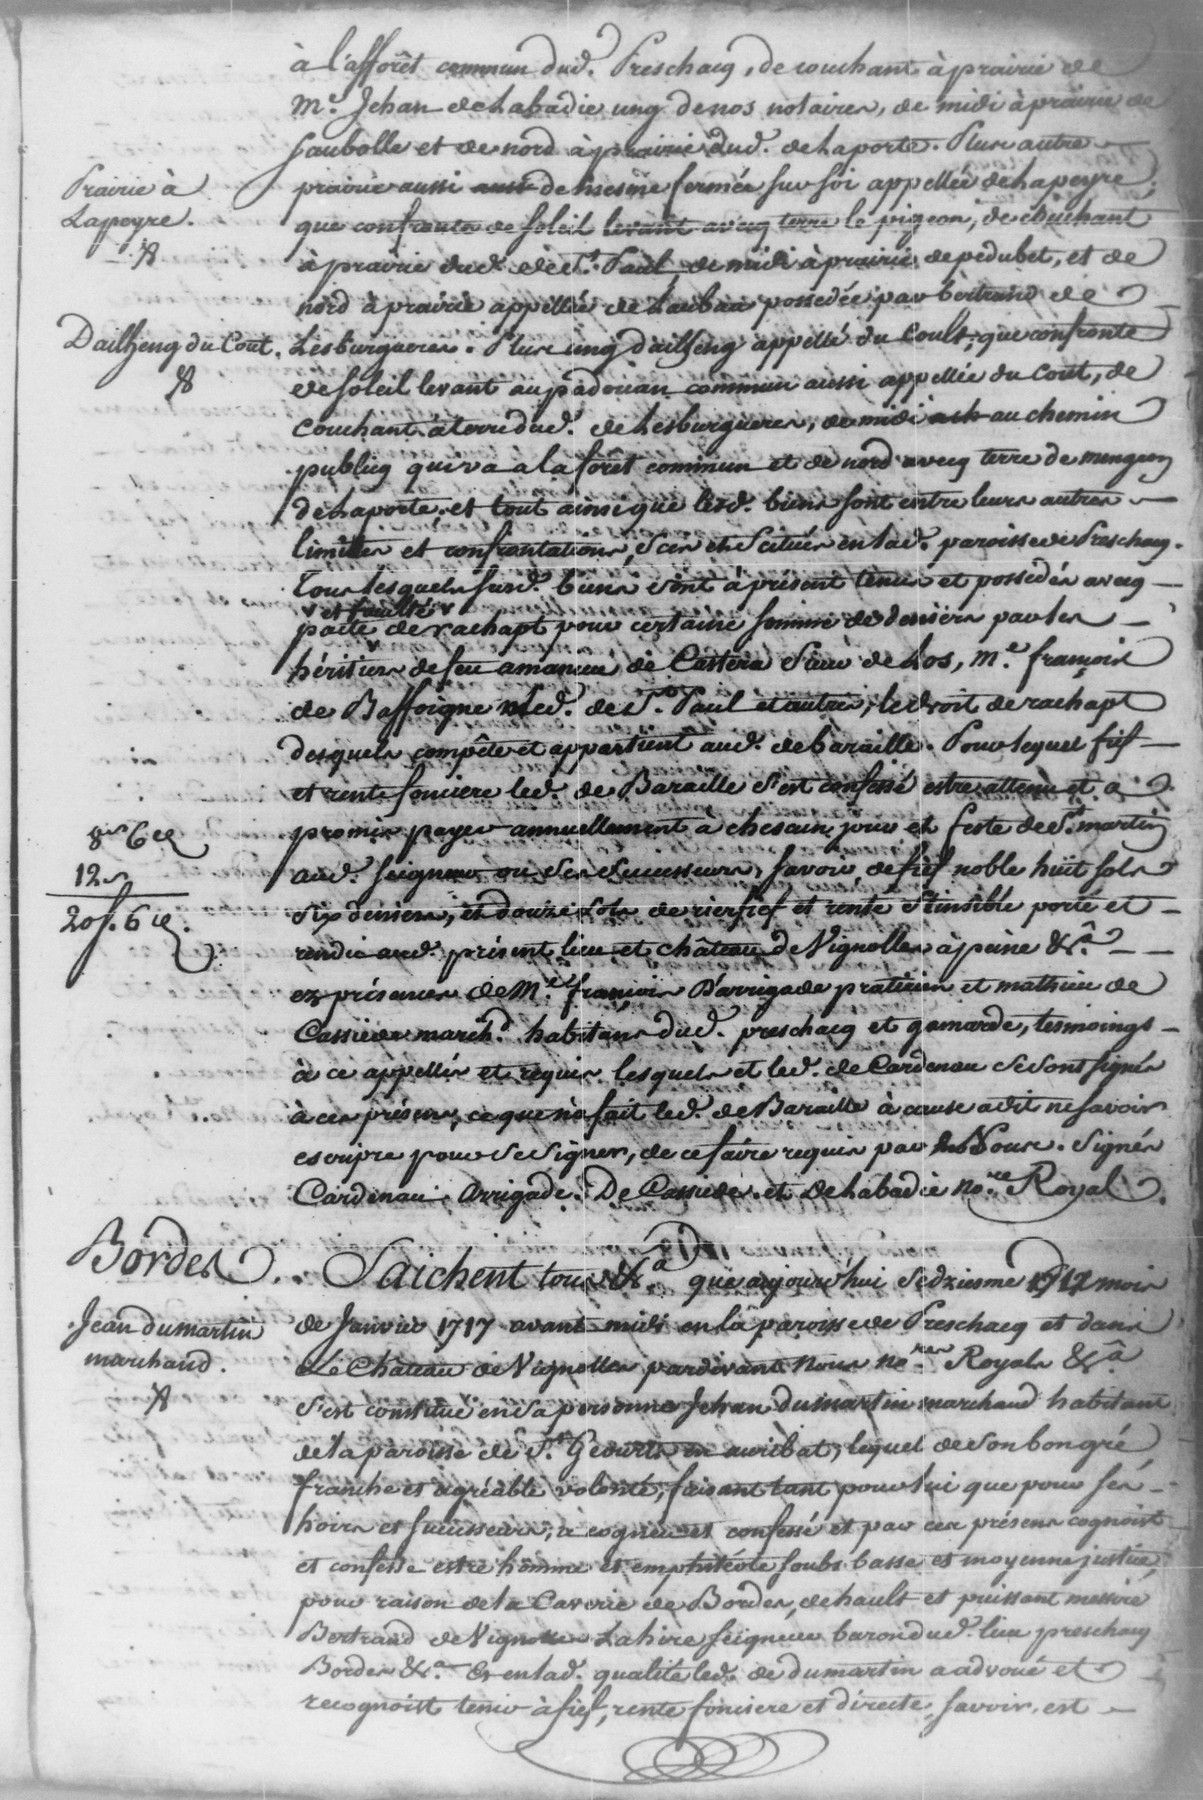 à l'afforêt commun dud. Preschacq, de couchant à prairie de
Me. Jehan de Labadie ung de nos notaires, de midi à prairie de
Saubolle et de nord à prairie dud. de Laporte. Plus autre
Prairie à
Lapeyre.
prairie aussi de mesme fermée sur soi appellée de Lapeyre,
que confronte de soleil levant avecq terre le pigeon, de couchant
à prairie dud. de St. Paul de midi à prairie de pedubet, et de
nord à prairie appellée de Laubaa possedée par bertrand de
Dailheng du Cout.
Lesburgueres. Plus ung dailheng appellé du Coult, que confronte
de soleil levant au padouan commun aussi appellée du Cout, de
couchant à terre dud. de Lesburgueres, de midi au chemin
publicq qui va a la forêt commun et de nord avecq terre de mengeon
de Laporte, et tout ainsi que lesd. biens sont entre leurs autres
limites et confrontations, Scis et Scitués en lad. paroisse de Preschacq.
Tous lesquels susd. biens sont à présent tenus et possedés avecq
et faculté
pacte de rachapt pour certaine somme de deniers par les
héritiers de feu amanieu de Castera Sieur de Los, Me. françois
de Baffoigne led. de St. Paul et autres, le droit de rachapt
desquels compête et appartient aud. de baraille. Pour lequel fief
et rente fonciere led. de Baraille s'est confessé estre attenu et a
8s 6d
promis payer annuellement à chescun jour et feste de St. martin
12s
aud. seigneur ou Ses Successeurs, savoir, de fief noble huit sols
20s. 6d.
Six deniers, et douze sols de rierfief et rente Stinsible porté et
rendu aud. présent lieu et château de Vignolles à peine &ca.
ez présences de Me. françois Darrigade praticien et mathieu de
Cassiede march.d habitans dud. preschacq et gamarde, tesmoings
à ce appellés et requis lesquels et led. de Cardenau se sont signés
à ces présens, ce que n'a fait led. de Baraille à cause a dit ne savoir
escripre pour se Signer, de ce faire requis par Nous. Signés
Cardenau. Arrigade. De Cassiede. et De Labadie no.re Royal.
Bordes.
Saichent tous &ca. que aujourd'hui Sedziesme mois
Jean dumartin
marchand.
de Janvier 1717 avant midi en la paroisse de Preschacq et dans
Le Château de Vignolles pardevant Nous no.res Royals &ca
s'est constitué en Sa personne Jehan dumartin marchand habitant
de la paroisse de St. Geours en auribat, lequel de Son bon gré
franche et agréable volonté, faisant tant pour lui que pour ses
hoirs et successeurs, a cogneu et confessé et par ces présens cognoist
et confesse estre homme et emphitéote soubs basse et moyenne justice,
pour raison de la Caverie de Bordes, de hault et puissant messire
Bertrand de Vignolles Lahire seigneur baron dud. lieu preschacq
Bordes &ca. Et en lad. qualité led. de dumartin a advoué et
recognoist tenir à fief, rente fonciere et directe, savoir, est